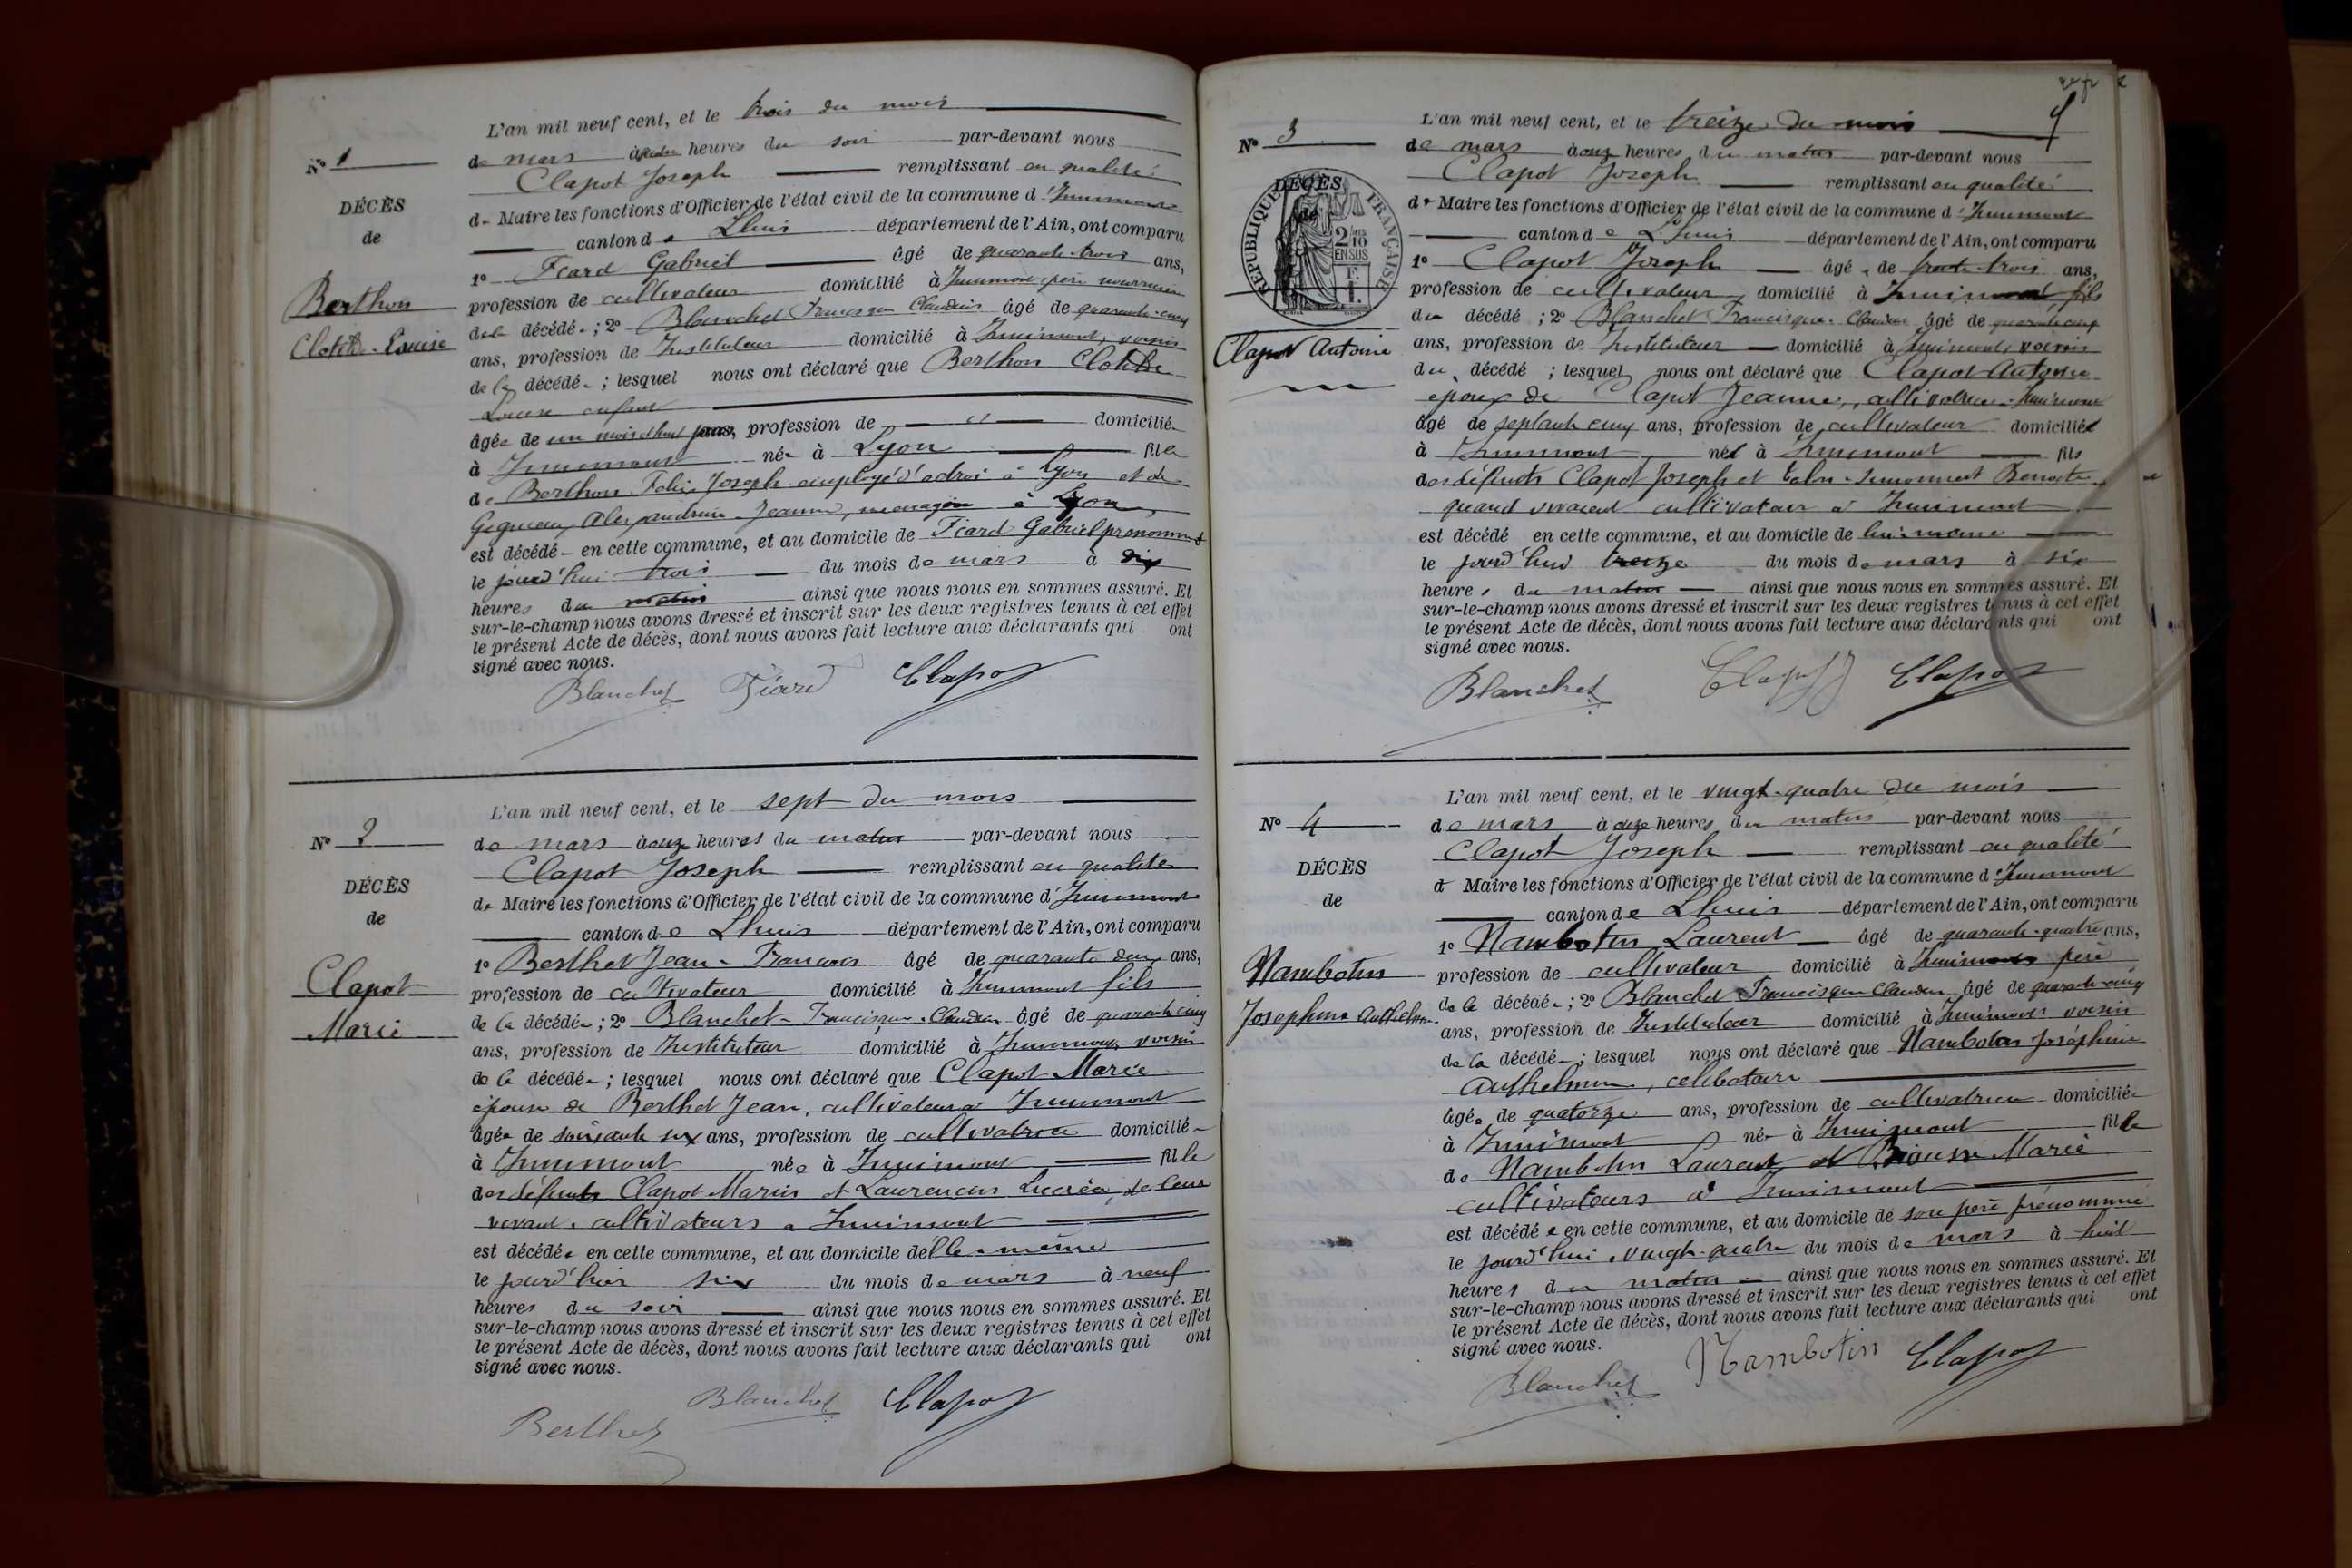 N° 1
DÉCÈS
de
Berthon
Clotilde Louise
L'an mil neuf cent, et le trois du mois
de mars à quatre heures du soir par-devant nous
Clapot Joseph remplissant en qualité
de Maire les fonctions d'Officier de l'état civil de la commune d'Innimont
canton de Lhuis département de l'Ain, ont comparu
1° Ficard Gabriel âgé de quarante-trois ans,
profession de cultivateur domicilié à Innimont père nourricier
de la décédée; 2° Blanchet Francisque Claudius âgé de quarante-cinq
ans, profession de Instituteur domicilié à Innimont, voisin
de la décédée; lesquel nous ont déclaré que Berthon Clotilde
Louise enfant
âgée de un mois et huit jours, profession de domicilié
à Innimont née à Lyon fille
de Berthon Felix Joseph employé d'octroi à Lyon et de
Alexandrine Jeanne, ménagère à Lyon,
est décédé en cette commune, et au domicile de Ficard Gabriel prénommé
le jourd'hui trois du mois de mars à dix
heures du matin ainsi que nous nous en sommes assuré. Et
sur-le-champ nous avons dressé et inscrit sur les deux registres tenus à cet effet
le présent Acte de décès, dont nous avons fait lecture aux déclarants qui ont
signé avec nous.
Blanchet Ficard Clapot
N° 2
DÉCÈS
de
Clapot
Marie
L'an mil neuf cent, et le sept du mois
de mars à onze heures du matin par-devant nous
Clapot Joseph remplissant en qualité
de Maire les fonctions d'Officier de l'état civil de la commune d'Innimont
canton de Lhuis département de l'Ain, ont comparu
1° Berthet Jean-François âgé de quarante deux ans,
profession de cultivateur domicilié à Innimont fils
de la décédée; 2° Blanchet Francisque Claudius âgé de quarante cinq
ans, profession de Instituteur domicilié à Innimont, voisin
de la décédée; lesquel nous ont déclaré que Clapot Marie
épouse de Berthet Jean, cultivateur à Innimont
âgée de soixante six ans, profession de cultivatrice domicilié
à Innimont née à Innimont fille
des défunts Clapot Marin et Laurencin Lucrèce, de leur
vivant cultivateurs à Innimont
est décédée en cette commune, et au domicile d'elle-même
le jourd'hier six du mois de mars à neuf
heures du soir ainsi que nous nous en sommes assuré. Et
sur-le-champ nous avons dressé et inscrit sur les deux registres tenus à cet effet
le présent Acte de décès, dont nous avons fait lecture aux déclarants qui ont
signé avec nous.
Berthet Blanchet Clapot
N° 3
DÉCÈS
de
RÉPUBLIQUE FRANÇAISE
2/10 EN SUS
Clapot Antoine
L'an mil neuf cent, et le treize du mois
de mars à onze heures du matin par-devant nous
Clapot Joseph remplissant en qualité
de Maire les fonctions d'Officier de l'état civil de la commune d'Innimont
canton de Lhuis département de l'Ain, ont comparu
1° Clapot Joseph âgé de trente-trois ans,
profession de cultivateur domicilié à Innimont fils
du décédé; 2° Blanchet Francisque Claudius âgé de quarante cinq
ans, profession de Instituteur domicilié à Innimont, voisin
du décédé; lesquel nous ont déclaré que Clapot Antoine
époux de Clapot Jeanne, cultivatrice Innimont
âgé de septante cinq ans, profession de cultivateur domicilié
à Innimont né à Innimont fils
des défunts Clapot Joseph et
quand vivaient cultivateur à Innimont
est décédé en cette commune, et au domicile de lui-même
le jourd'hui treize du mois de mars à six
heures du matin ainsi que nous nous en sommes assuré. Et
sur-le-champ nous avons dressé et inscrit sur les deux registres tenus à cet effet
le présent Acte de décès, dont nous avons fait lecture aux déclarants qui ont
signé avec nous.
Blanchet Clapot Clapot
N° 4
DÉCÈS
de
Nambotin
Josephine Anthelmine
L'an mil neuf cent, et le vingt-quatre du mois
de mars à onze heures du matin par-devant nous
Clapot Joseph remplissant en qualité
d Maire les fonctions d'Officier de l'état civil de la commune d'Innimont
canton de Lhuis département de l'Ain, ont comparu
1° Nambotin Laurent âgé de quarante-quatre ans,
profession de cultivateur domicilié à Innimont père
de la décédée; 2° Blanchet Francisque Claudius âgé de quarante-cinq
ans, profession de Instituteur domicilié à Innimont voisin
de la décédée; lesquel nous ont déclaré que Nambotin Joséphine
Anthelmine, célibataire
âgée de quatorze ans, profession de cultivatrice domiciliée
à Innimont née à Innimont fille
de Nambotin Laurent et Marie
cultivateurs à Innimont
est décédée en cette commune, et au domicile de son père prénommé
le jourd'hui vingt-quatre du mois de mars à huit
heures du matin ainsi que nous nous en sommes assuré. Et
sur-le-champ nous avons dressé et inscrit sur les deux registres tenus à cet effet
le présent Acte de décès, dont nous avons fait lecture aux déclarants qui ont
signé avec nous.
Blanchet Nambotin Clapot